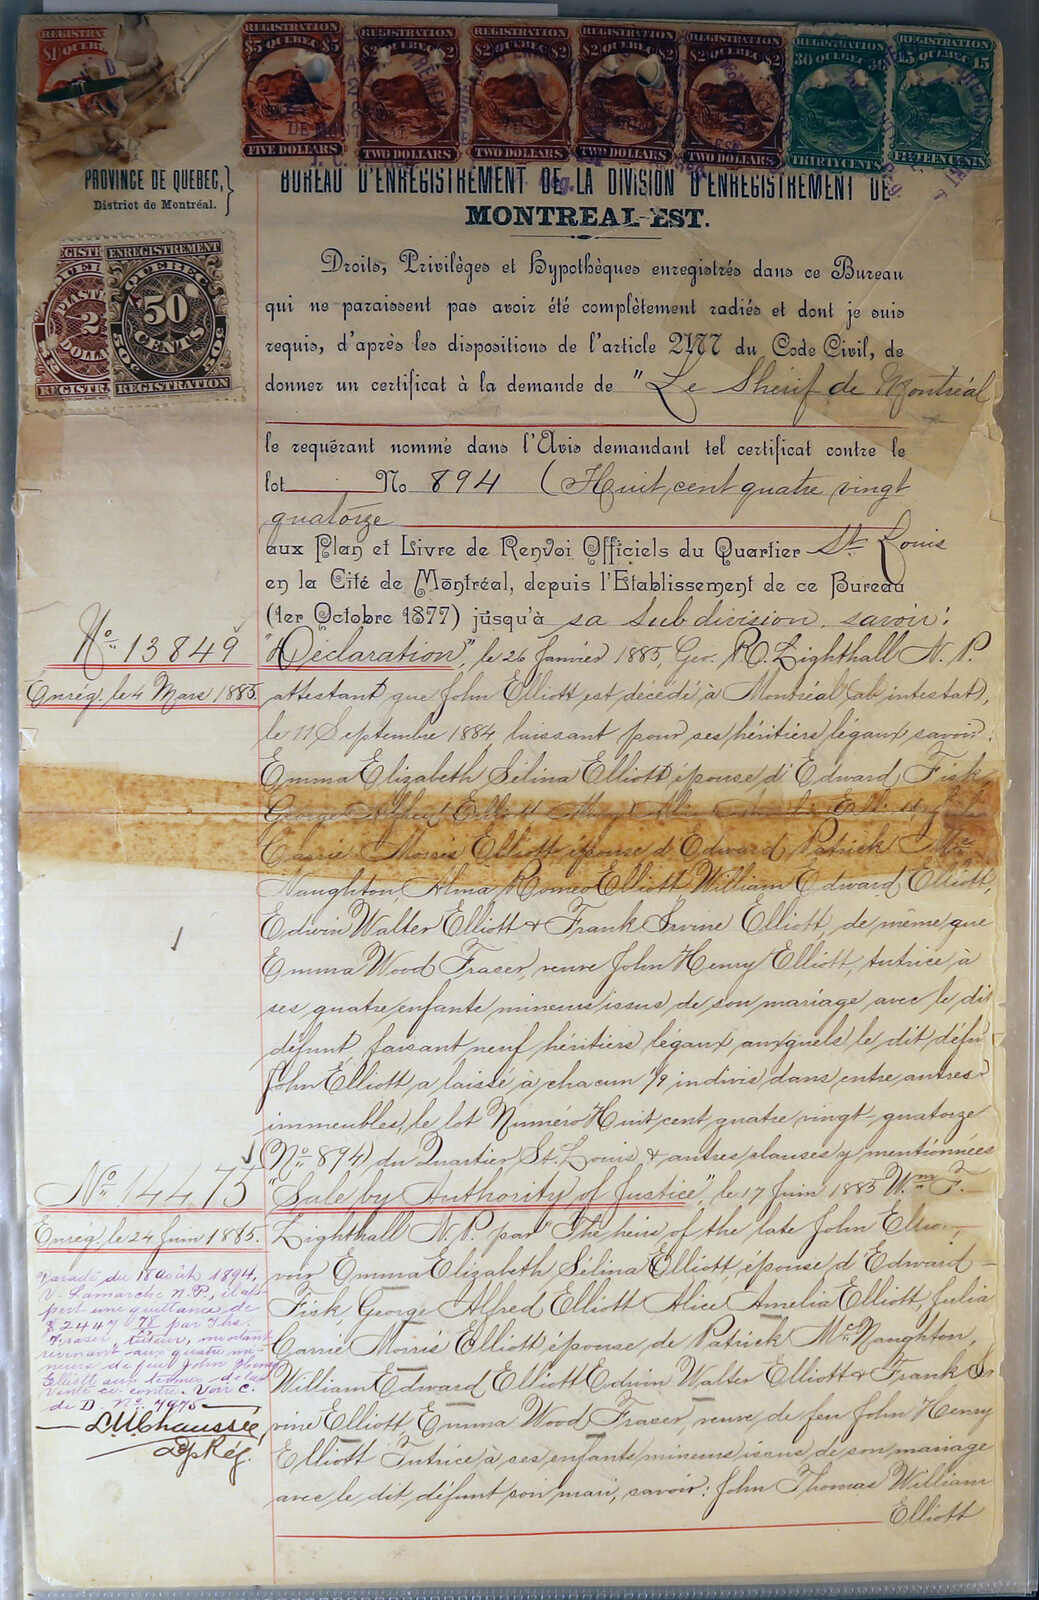 REGISTRATION
$5 QUEBEC $5
FIVE DOLLARS
REGISTRATION
$2 QUEBEC $2
TWO DOLLARS
REGISTRATION
$2 QUEBEC $2
TWO DOLLARS
REGISTRATION
$2 QUEBEC $2
TWO DOLLARS
REGISTRATION
$2 QUEBEC $2
TWO DOLLARS
REGISTRATION
30 QUEBEC 30
THIRTY CENTS
REGISTRATION
15 QUEBEC 15
FIFTEEN CENTS
PROVINCE DE QUEBEC,
District de Montréal.
ENREGISTREMENT
QUEBEC
50
CENTS
REGISTRATION
BUREAU D'ENREGISTREMENT DE LA DIVISION D'ENREGISTREMENT DE
MONTREAL-EST.
Droits, Privilèges et Hypothèques enregistrés dans ce Bureau
qui ne paraissent pas avoir été complètement radiés et dont je suis
requis, d'après les dispositions de l'article 2177 du Code Civil, de
donner un certificat à la demande de "Le Shérif de Montréal
le requérant nommé dans l'Avis demandant tel certificat contre le
lot No 894 (Huit cent quatre vingt
quatorze
aux Plan et Livre de Renvoi Officiels du Quartier St. Louis
en la Cité de Montréal, depuis l'Etablissement de ce Bureau
(1er Octobre 1877) jusqu'à sa subdivision, savoir:
No 13849
Enrég. le 4 Mars 1885.
"Déclaration", le 26 Janvier 1885, Geo. R. Lighthall N.P.
attestant que John Elliott est décédé à Montréal (ab intestat),
le 11 Septembre 1884 laissant pour ses héritiers légaux savoir:
Emma Elizabeth Sélina Elliott épouse d'Edward Fisk
George Alfred Elliott
Carrie Morris Elliott épouse d'Edward Patrick Mc
Naughton, Alma Romeo Elliott William Edward Elliott,
Edwin Walter Elliott & Frank Irvine Elliott, de même que
Emma Wood Fraser, veuve John Henry Elliott, tutrice à
ses quatre enfants mineurs issus de son mariage avec le dit
défunt, faisant neuf héritiers légaux auxquels le dit défu
John Elliott a laissé à chacun 1/9 indivis dans entre autres
immeubles, le lot Numéro Huit cent quatre vingt-quatorze
(No 894) du Quartier St. Louis & autres clauses y mentionnées
No 14475
Enrég. le 24 Juin 1885.
"Sale by Authority of Justice", le 17 Juin 1885 Wm F.
Lighthall N.P. par "The heirs of the late John
voir Emma Elizabeth Sélina Elliott, épouse d'Edward
Fisk, George Alfred Elliott Alice Amelia Elliott, Julia
Carrie Morris Elliott épouse de Patrick McNaughton,
William Edward Elliott Edwin Walter Elliott & Frank Ir
vine Elliott, Emma Wood Fraser, veuve de feu John Henry
Elliott Tutrice à ses enfants mineurs issus de son mariage
avec le dit défunt son mari, savoir: John Thomas William
Elliott
du 18 août 1894,
V. Lamarche N.P., il ap-
pert une quittance de
$2447 75 par Ths.
Fraser, tuteur, montant
revenant aux quatre mi-
neurs de feu John Henry
Elliott aux termes de la
vente ci-contre. Voir C.
de D. No 7975
Dep Rég.